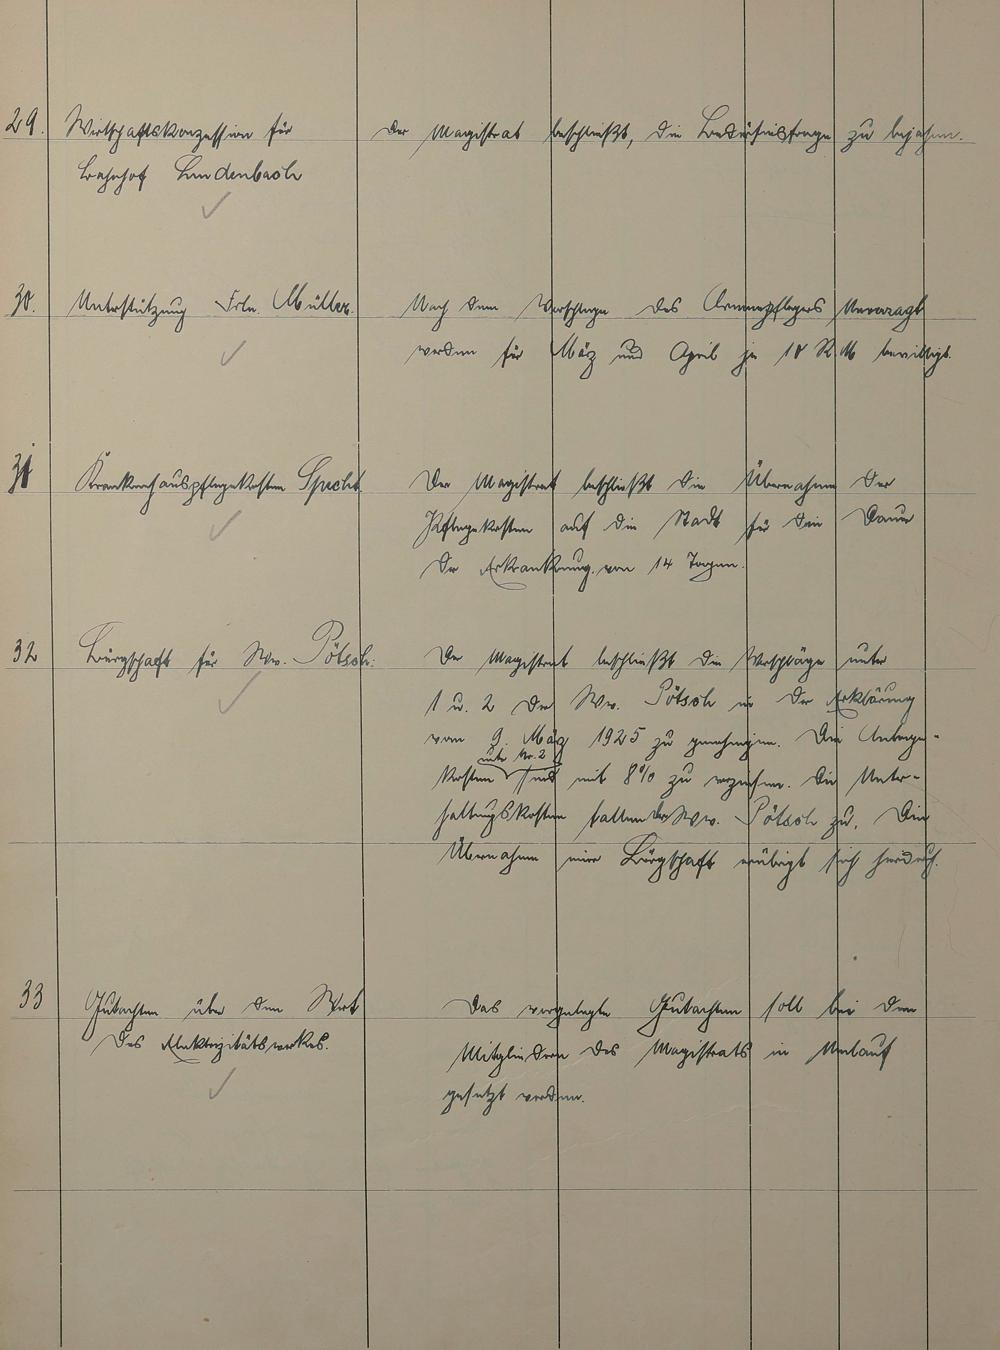 29. Wirtschaftskonzession für
Bahnhof Lindenbach
Der Magistrat beschließt, die Bedürfnisfrage zu bejahen.
30. Unterstützung Frln. Müller.
Nach dem Vorschlage des Armenpflegers
werden für März und April je 10 R.M bewilligt.
31 Krankenhauspflegekosten Specht.
Der Magistrat beschließt die Übernahme der
Pflegekosten auf die Stadt für die Dauer
der Erkrankung von 14 Tagen.
32 Bürgschaft für Ww. Pötsch.
Der Magistrat beschließt die Vorschläge unter
1 u. 2 der Ww. Pötsch in der Erklärung
vom 9. März 1925 zu genehmigen. Die Anlage-
unter Nr. 2
kosten sind mit 8% zu verzinsen. Die Unter-
haltungskosten fallen der Ww. Pötsch zu. Die
Übernahme einer Bürgschaft erübrigt sich hierdurch.
33 Gutachten über den Wert
des Elektrizitätswerkes.
Das vorgelegte Gutachten soll bei den
Mitgliedern des Magistrats in Umlauf
gesetzt werden.